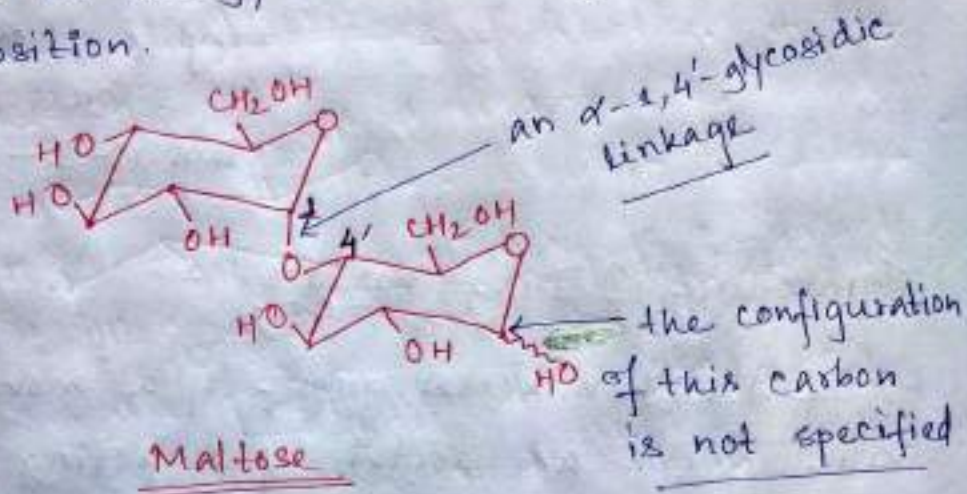 osition.
CH2OH
O
HO
HO
OH
1
an α-1,4'-glycosidic
linkage
O
4'
CH2OH
O
HO
OH
HO
the configuration
of this carbon
is not specified
Maltose